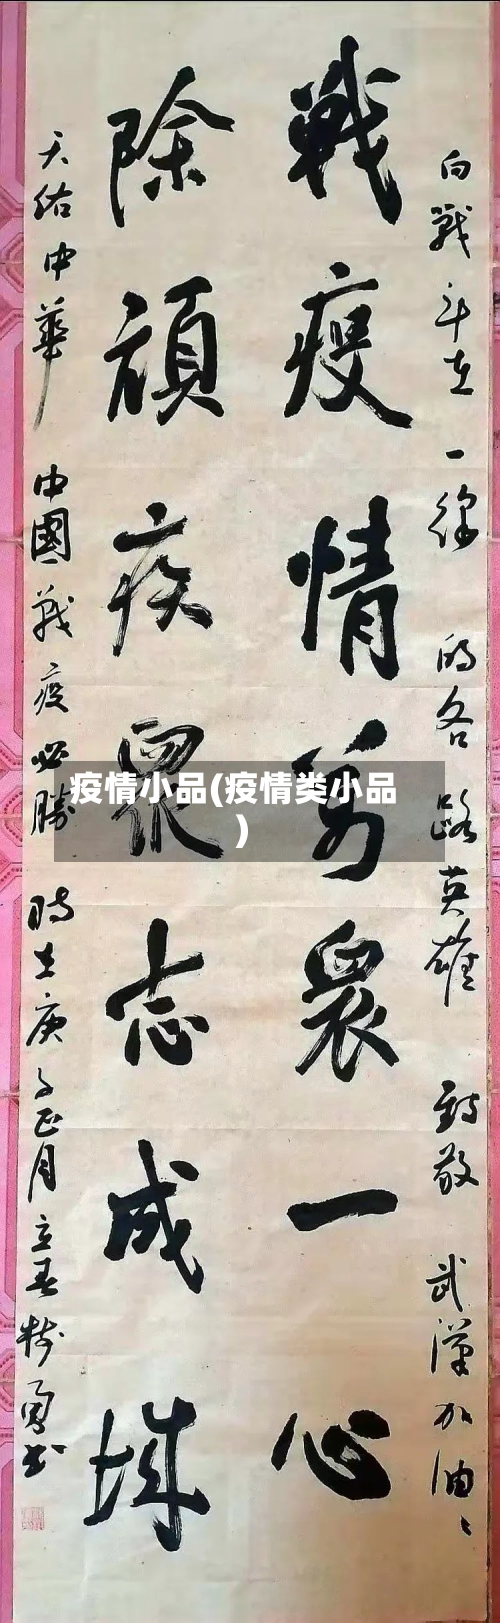 向戰斗在一線的各路英雄 致敬 武漢加油
戰疫情萬眾一心
除頑疾眾志成城
天佑中華 中國戰疫必勝 時在庚子正月立春樹勇書
疫情小品(疫情类小品
)